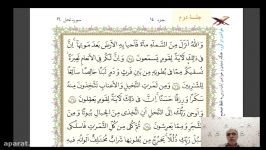 جلسه دوم
جزء ١٤
وَاللَّهُ أَنزَلَ مِنَ السَّمَاءِ مَاءً فَأَحْيَا بِهِ الْأَرْضَ بَعْدَ مَوْتِهَا إِنَّ
فِي ذَٰلِكَ لَآيَةً لِقَوْمٍ يَسْمَعُونَ وَإِنَّ لَكُمْ فِي الْأَنْعَامِ لَعِبْرَةً
نُسْقِيكُمْ مِمَّا فِي بُطُونِهِ مِنْ بَيْنِ فَرْثٍ وَدَمٍ لَبَنًا خَالِصًا سَائِغًا
لِلشَّارِبِينَ وَمِنْ ثَمَرَاتِ النَّخِيلِ وَالْأَعْنَابِ تَتَّخِذُونَ مِنْهُ
سَكَرًا وَرِزْقًا حَسَنًا إِنَّ فِي ذَٰلِكَ لَآيَةً لِقَوْمٍ يَعْقِلُونَ
وَأَوْحَىٰ رَبُّكَ إِلَى النَّحْلِ أَنِ اتَّخِذِي مِنَ الْجِبَالِ بُيُوتًا وَمِنَ
الشَّجَرِ وَمِمَّا يَعْرِشُونَ ثُمَّ كُلِي مِنْ كُلِّ الثَّمَرَاتِ فَاسْلُكِي
سُبُلَ رَبِّكِ ذُلُلًا يَخْرُجُ مِنْ بُطُونِهَا شَرَابٌ مُخْتَلِفٌ أَلْوَانُهُ فِيهِ
aparat.com